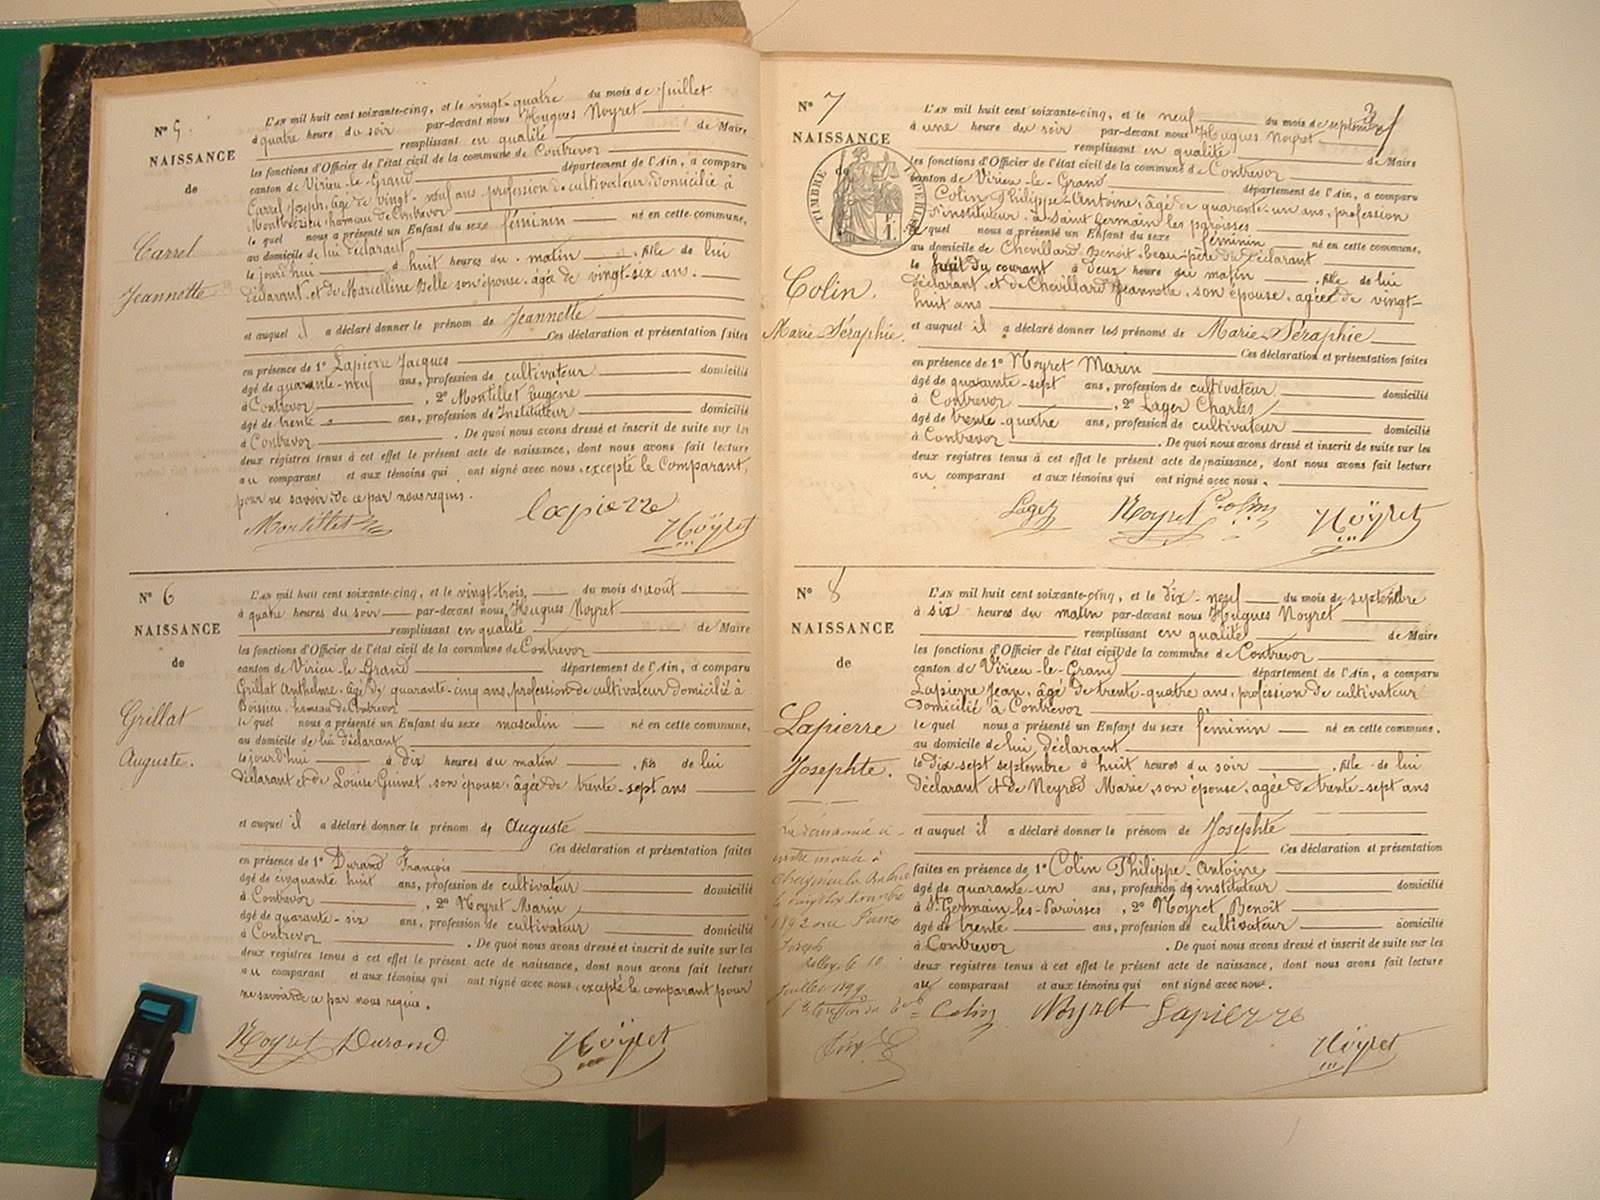 N° 5.
NAISSANCE
de
Carrel
Jeannette
L'AN mil huit cent soixante-cinq, et le vingt-quatre du mois de Juillet
à quatre heure du soir par-devant nous Hugues Noyret
remplissant en qualité de Maire
les fonctions d'Officier de l'état civil de la commune de Contrevoz
canton de Virieu-le-Grand département de l'Ain, a comparu
Carrel Joseph, âgé de vingt-neuf ans, profession de cultivateur, domicilié à
Montbrézieu, hameau de Contrevoz
le quel nous a présenté un Enfant du sexe féminin né en cette commune,
au domicile de lui déclarant
le jourd'hui à huit heures du matin, fille de lui
déclarant et de Marcelline Belle son épouse, âgée de vingt-six ans.
et auquel il a déclaré donner le prénom de Jeannette
Ces déclaration et présentation faites
en présence de 1° Lapierre Jacques
âgé de quarante-neuf ans, profession de cultivateur domicilié
à Contrevoz, 2° Montillet Eugène
âgé de trente ans, profession de Instituteur domicilié
à Contrevoz. De quoi nous avons dressé et inscrit de suite sur les
deux registres tenus à cet effet le présent acte de naissance, dont nous avons fait lecture
au comparant et aux témoins qui ont signé avec nous, excepté le Comparant,
pour ne savoir de ce par nous requis.
Montillet lapierre Noÿret
N° 6
NAISSANCE
de
Grillat
Auguste.
L'AN mil huit cent soixante-cinq, et le vingt-trois, du mois de août
à quatre heures du soir par-devant nous, Hugues Noyret
remplissant en qualité de Maire
les fonctions d'Officier de l'état civil de la commune de Contrevoz
canton de Virieu-le-Grand département de l'Ain, a comparu
Grillat Anthelme, âgé de quarante-cinq ans, profession de cultivateur domicilié à
Boissieu, hameau de Contrevoz
le quel nous a présenté un Enfant du sexe masculin né en cette commune,
au domicile de lui déclarant
le jourd'hui à dix heures du matin, fils de lui
déclarant et de Louise Guinet, son épouse, âgée de trente-sept ans
et auquel il a déclaré donner le prénom de Auguste
Ces déclaration et présentation faites
en présence de 1° Durand François
âgé de cinquante huit ans, profession de cultivateur domicilié
à Contrevoz, 2° Noyret Marin
âgé de quarante-six ans, profession de cultivateur domicilié
à Contrevoz. De quoi nous avons dressé et inscrit de suite sur les
deux registres tenus à cet effet le présent acte de naissance, dont nous avons fait lecture
au comparant et aux témoins qui ont signé avec nous, excepté le comparant pour
ne savoir de ce par nous requis.
Noyret Durand Noÿret
N° 7
NAISSANCE
de
TIMBRE IMPÉRIAL
Colin.
Marie-Séraphie.
L'AN mil huit cent soixante-cinq, et le neuf du mois de septembre
à une heure du soir par-devant nous Hugues Noyret
remplissant en qualité de Maire
les fonctions d'Officier de l'état civil de la commune de Contrevoz
canton de Virieu-le-Grand département de l'Ain, a comparu
Colin Philippe-Antoine, âgé de quarante-un ans, profession
d'instituteur, à Saint Germain les paroisses
le quel nous a présenté un Enfant du sexe féminin né en cette commune,
au domicile de Chevillard Benoit, beau-père du déclarant
le huit du courant à deux heure du matin, fille de lui
déclarant, et de Chevillard Jeannette, son épouse, agée de vingt-
huit ans
et auquel il a déclaré donner les prénoms de Marie-Séraphie
Ces déclaration et présentation faites
en présence de 1° Noyret Marin
âgé de quarante-sept ans, profession de cultivateur domicilié
à Contrevoz, 2° Lager Charles
âgé de trente-quatre ans, profession de cultivateur domicilié
à Contrevoz. De quoi nous avons dressé et inscrit de suite sur les
deux registres tenus à cet effet le présent acte de naissance, dont nous avons fait lecture
au comparant et aux témoins qui ont signé avec nous.
Lager Noyret Colin Noÿret
N° 8
NAISSANCE
de
Lapierre
Josephte.
L'AN mil huit cent soixante-cinq, et le dix-neuf du mois de septembre
à six heures du matin par-devant nous Hugues Noyret
remplissant en qualité de Maire
les fonctions d'Officier de l'état civil de la commune de Contrevoz
canton de Virieu-le-Grand département de l'Ain, a comparu
Lapierre Jean, âgé de trente-quatre ans, profession de cultivateur
domicilié à Contrevoz
le quel nous a présenté un Enfant du sexe féminin né en cette commune,
au domicile de lui déclarant
le dix-sept septembre à huit heures du soir, fille de lui
déclarant et de Neyrod Marie, son épouse, agée de trente-sept ans
et auquel il a déclaré donner le prénom de Josephte
Ces déclaration et présentation
faites en présence de 1° Colin Philippe-Antoine
âgé de quarante-un ans, profession de instituteur domicilié
à St Germain-les-Paroisses, 2° Noyret Benoit
âgé de trente ans, profession de cultivateur domicilié
à Contrevoz. De quoi nous avons dressé et inscrit de suite sur les
deux registres tenus à cet effet le présent acte de naissance, dont nous avons fait lecture
au comparant et aux témoins qui ont signé avec nous.
mariée à
1892
Joseph
le 10
Juillet 1899
Colin Noyret Lapierre
Noÿret